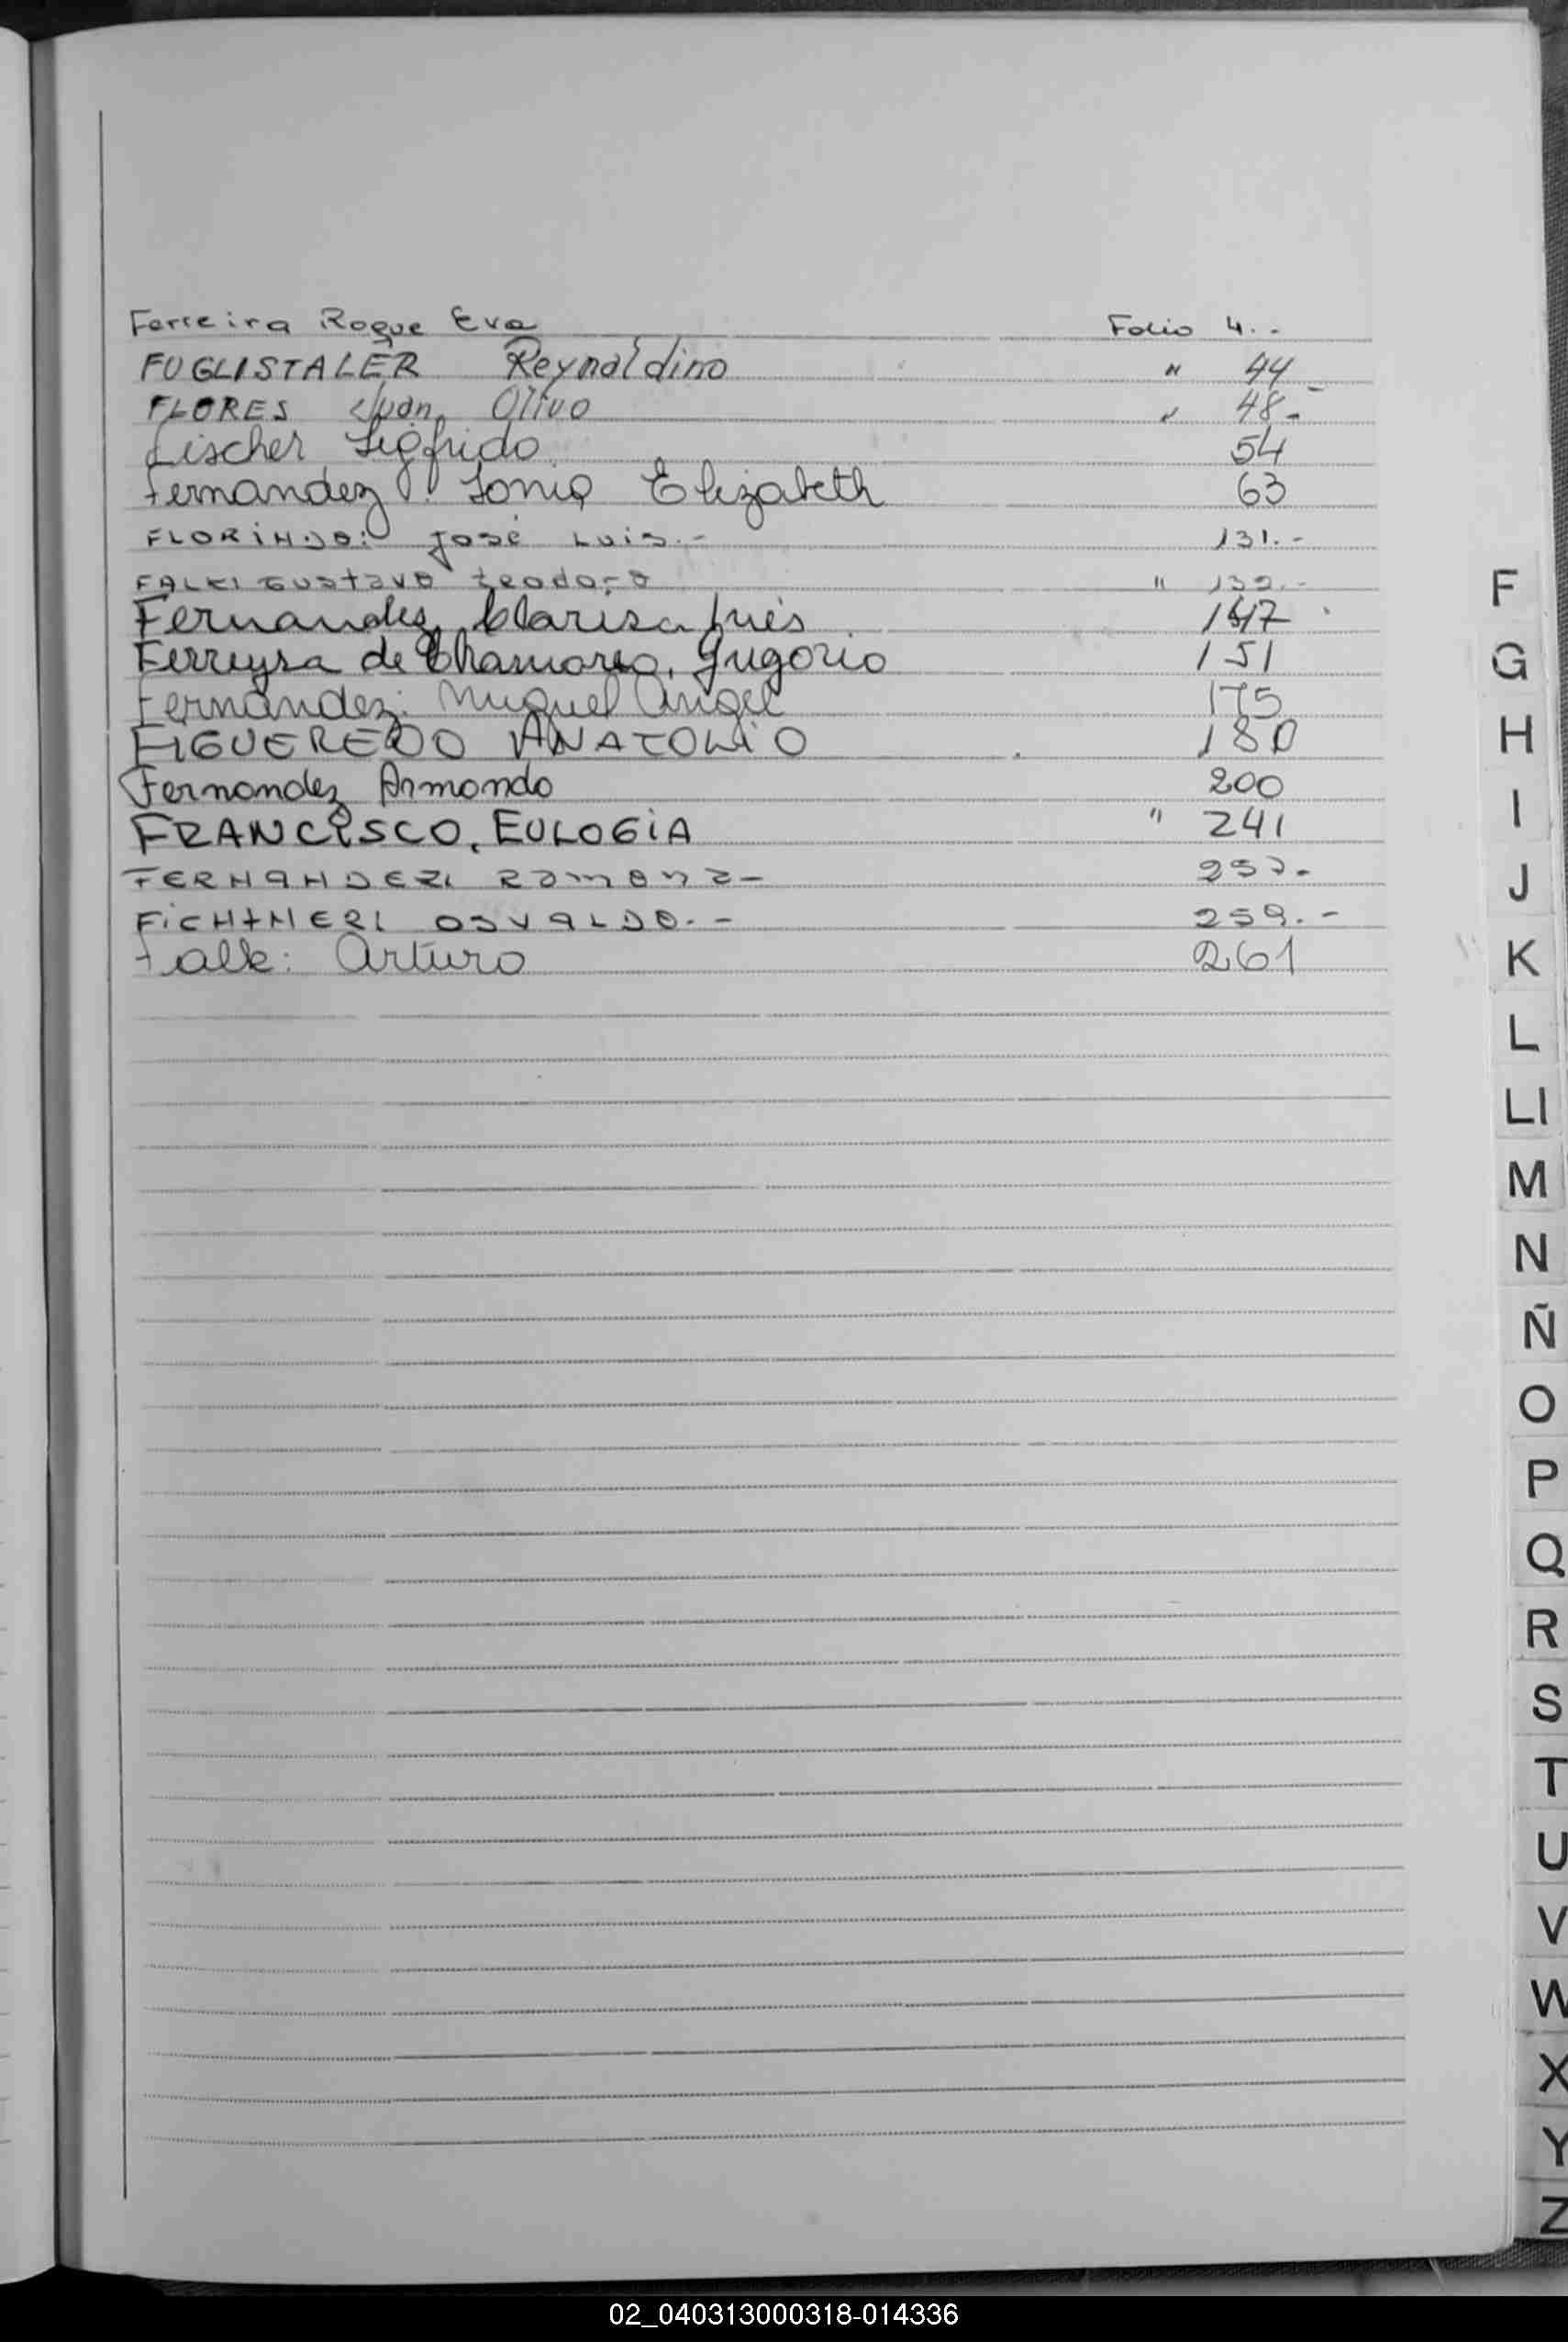 Ferreira Roque Eva Folio 4.-
FUGLISTALER Reynaldino " 44
FLORES Juan Olivo " 48-
Fischer Sigfrido 54
Fernandez: Sonia Elizabeth 63
FLORINDO: José Luis.- 131.-
FALK: Gustavo teodoro " 139.-
Fernandez, Clarisa Inés 147
Ferreyra de Chamorro, Gregorio 151
Fernández: Miguel Angel 175
FIGUEREDO ANATOLIO 180
Fernandez Armando 200
FRANCISCO, EULOGIA " 241
FERNANDEZ: Ramona-
FICHTNER: OSVALDO.- 259.-
Falk: Arturo 261
F
G
H
I
J
K
L
Ll
M
N
Ñ
O
P
Q
R
S
T
U
V
W
X
Y
Z
02_040313000318-014336